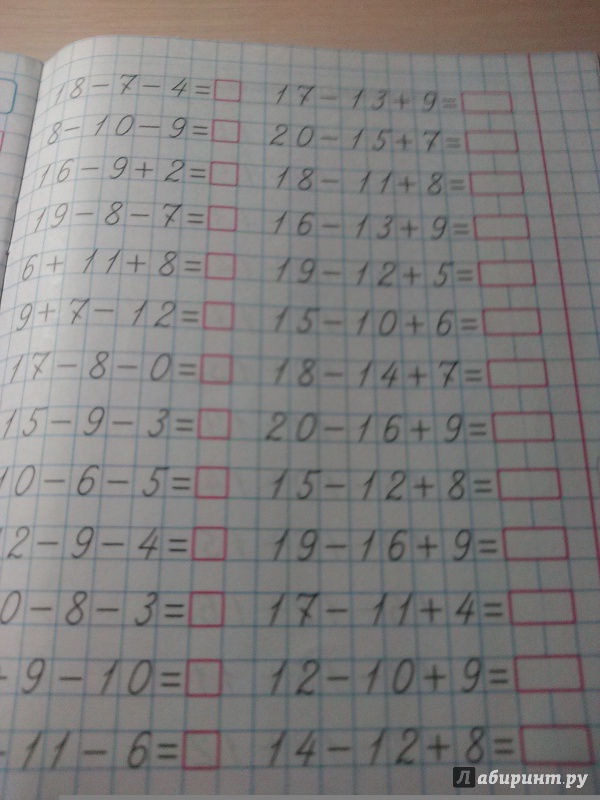 18-7-4=
8-10-9=
16-9+2=
19-8-7=
6+11+8=
9+7-12=
17-8-0=
15-9-3=
10-6-5=
12-9-4=
0-8-3=
9-10=
-11-6=
17-13+9=
20-15+7=
18-11+8=
16-13+9=
19-12+5=
15-10+6=
18-14+7=
20-16+9=
15-12+8=
19-16+9=
17-11+4=
12-10+9=
14-12+8=
Лабиринт.ру